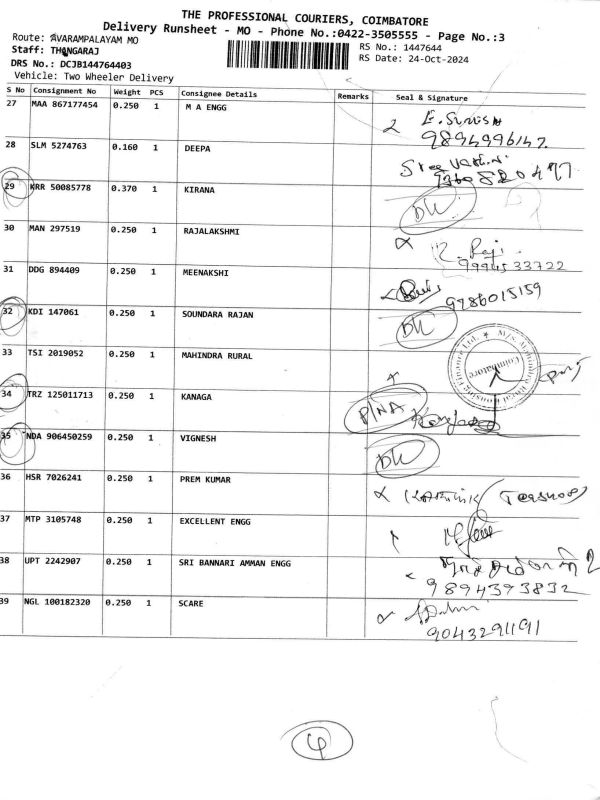 THE PROFESSIONAL COURIERS, COIMBATORE
Delivery Runsheet - MO - Phone No.:0422-3505555 - Page No.:3
Route: AVARAMPALAYAM MO
Staff: THANGARAJ
RS No.: 1447644
DRS No.: DCJB144764403
RS Date: 24-Oct-2024
Vehicle: Two Wheeler Delivery
S No Consignment No Weight PCS Consignee Details Remarks Seal & Signature
27 MAA 867177454 0.250 1 M A ENGG
28 SLM 5274763 0.160 1 DEEPA
29 KRR 50085778 0.370 1 KIRANA DK
30 MAN 297519 0.250 1 RAJALAKSHMI Raji
9994533722
31 DDG 894409 0.250 1 MEENAKSHI 9786015159
32 KDI 147061 0.250 1 SOUNDARA RAJAN DK
33 TSI 2019052 0.250 1 MAHINDRA RURAL Coimbatore
34 TRZ 125011713 0.250 1 KANAGA P/NA
35 NDA 906450259 0.250 1 VIGNESH DK
36 HSR 7026241 0.250 1 PREM KUMAR
37 MTP 3105748 0.250 1 EXCELLENT ENGG
38 UPT 2242907 0.250 1 SRI BANNARI AMMAN ENGG
9894393832
39 NGL 100182320 0.250 1 SCARE
9043291191
4